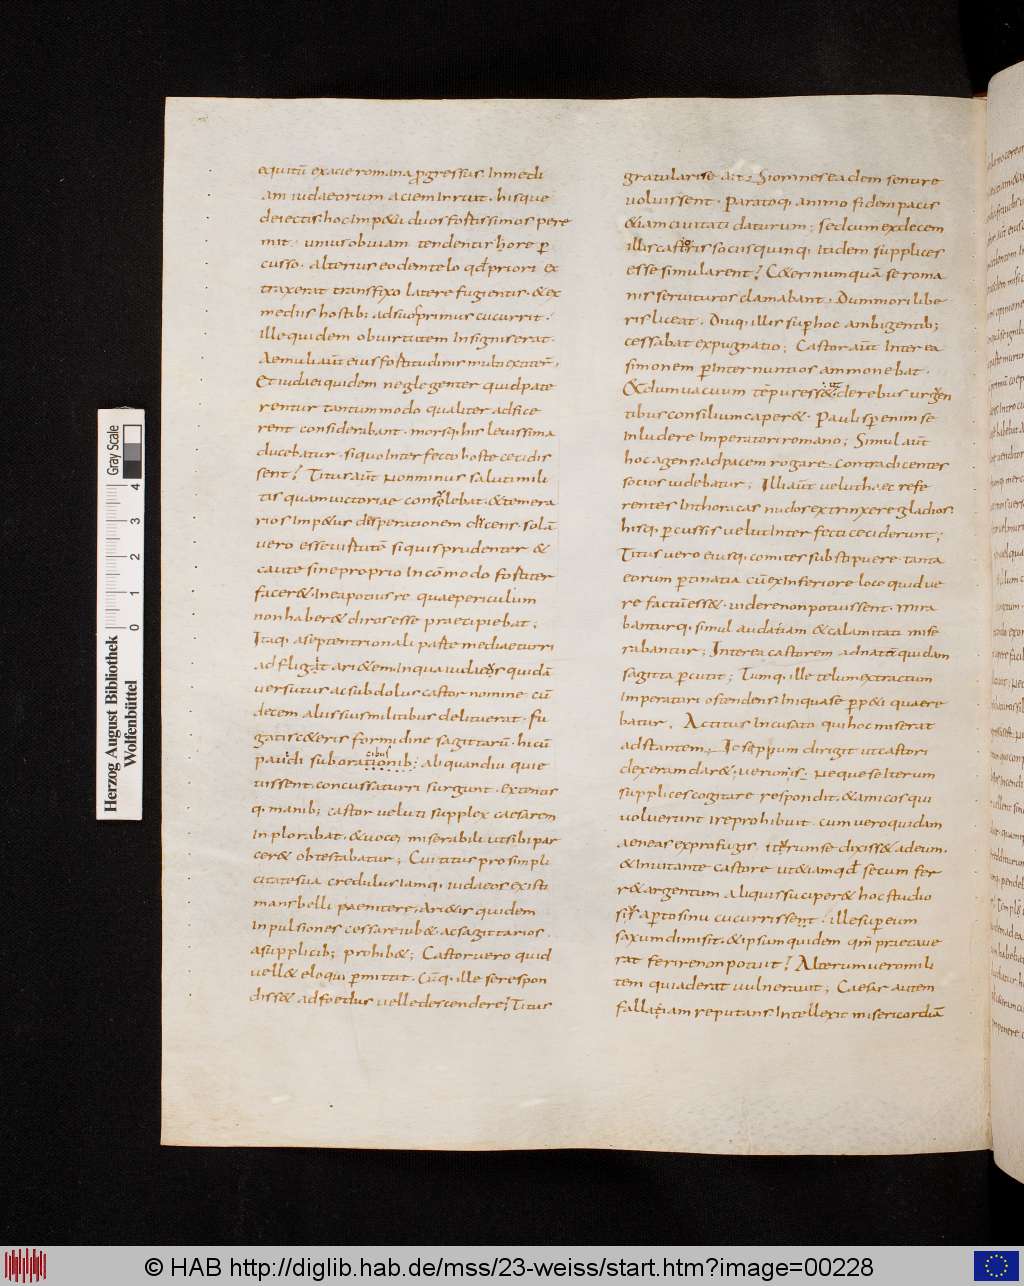 equitū exacie romana ꝓgressus. Inmedi
am iudaeorum aciem inruit. hisque
deiectis hoc Imp&u duos fortissimos pere
mit. unius obuiam tendentis hore ꝑ
cusso. alterius eodem telo qđ priori ex
traxerat transfixo latere fugientis. & ex
mediis hostib; ad suos primus cucurrit.
ille quidem ob uirtutem Insignis erat.
Aemuli aūt eius fortitudinis multi extiter̄,
Et iudaei quidem neglegenter quid pate
rentur tantummodo qualiter adfice
rent considerabant. morsq; his leuissima
ducebatur. si quo Interfecto hoste cecidis
sent; Titus aūt non minus saluti mili
tis quam uictoriae consolebat. & temera
rios Imp&us desperationem dicens. solā
uero esse uirtutē si quis prudenter &
caute sine proprio Incōmodo fortiter
facer& In ea potius re quae periculum
non haber& uiros esse praecipiebat;
Itaq; a septentrionali parte mediae turri
adfligit ari&em In qua iudaeus quidā
uersutus ac subdolus castor nomine cū
decem aliis sui similibus delituerat. fu
gatis c&eris formidine sagittarū. hi cū
paudi sub orationib; aliquandiu quie
uissent. concussa turri surgunt. Extensis
q; manib; castor ueluti supplex caesarem
In plorabat. & uoce miserabili ut sibi par
cer& obtestabatur; Cui titus pro simpli
citate sua credulus iamq; iudaeos existi
mans belli paenitere, ari&is quidem
Inpulsiones cessare iub&. ac sagittarios.
a supplicib; prohib&; Castor uero quid
uell& eloqui ꝑmittit. Cūq; ille se respon
diss& ad foedus uelle descendere; Titus
gratulari se ait. Si omnes eadem sentire
uoluissent. Paratoq; animo fidem pacis
& iam ciuitati daturum; sed cum ex decem
illis castoris sociis quinq; itidem supplices
esse simularent; C&eri numquā se roma
nis seruituros clamabant. Dum mori libe
ris liceat. Diuq; illis suꝑ hoc ambigentib;
cessabat expugnatio; Castor aūt Interea
simonem ꝑ Internuntios ammonebat.
& dum uacuum tēpus ess& de rebus urgen
tibus consilium caper&. Paulisꝑ enim se
Inludere Imperatori romano; Simul aūt
hoc agens ad pacem rogare. contradicentes
socios uidebatur; Illi aūt uelut haec refe
rentes In thoracas nudos extrinxere gladios.
hisq; ꝑcussis uelut Interfecta ceciderunt;
Titus uero eiusq; comites subs&tipuere. tanta
eorum ꝑtinatia cū ex Inferiore loco quid ue
re factū ess& uidere non potuissent. mira
banturq; simul audatiam & calamitati mise
rabantur; Interea castorem ad natē quidam
sagitta ꝑcutit; Tumq; ille telum extractum
Imperatori ostendens. Iniqua se ꝑp&i quaere
batur. Ac titus Incusato qui hoc miserat
adstantem. Iosippum dirigit ut castori
dexeram dar&;
supplices cogitare respondit. & amicos qui
uoluerunt ire prohibuit. cum uero quidam
aeneas ex profugis. iturum se dixiss& ad eum.
& inuitante castore ut &iam qđ secum fer
r& argentum aliquis susciper& hoc studio
aꝑto sinu cucurrissent. ille suꝑ eum
saxum dimisit. & ipsum quidem qm̄ praecaue
rat ferire non potuit; Alterum uero mili
tem qui aderat uulnerauit; Caesar autem
fallatiam reputans Intellexit misericordiā
Herzog August Bibliothek
Wolfenbüttel
0 1 2 3 4
Gray Scale
© HAB http://diglib.hab.de/mss/23-weiss/start.htm?image=00228